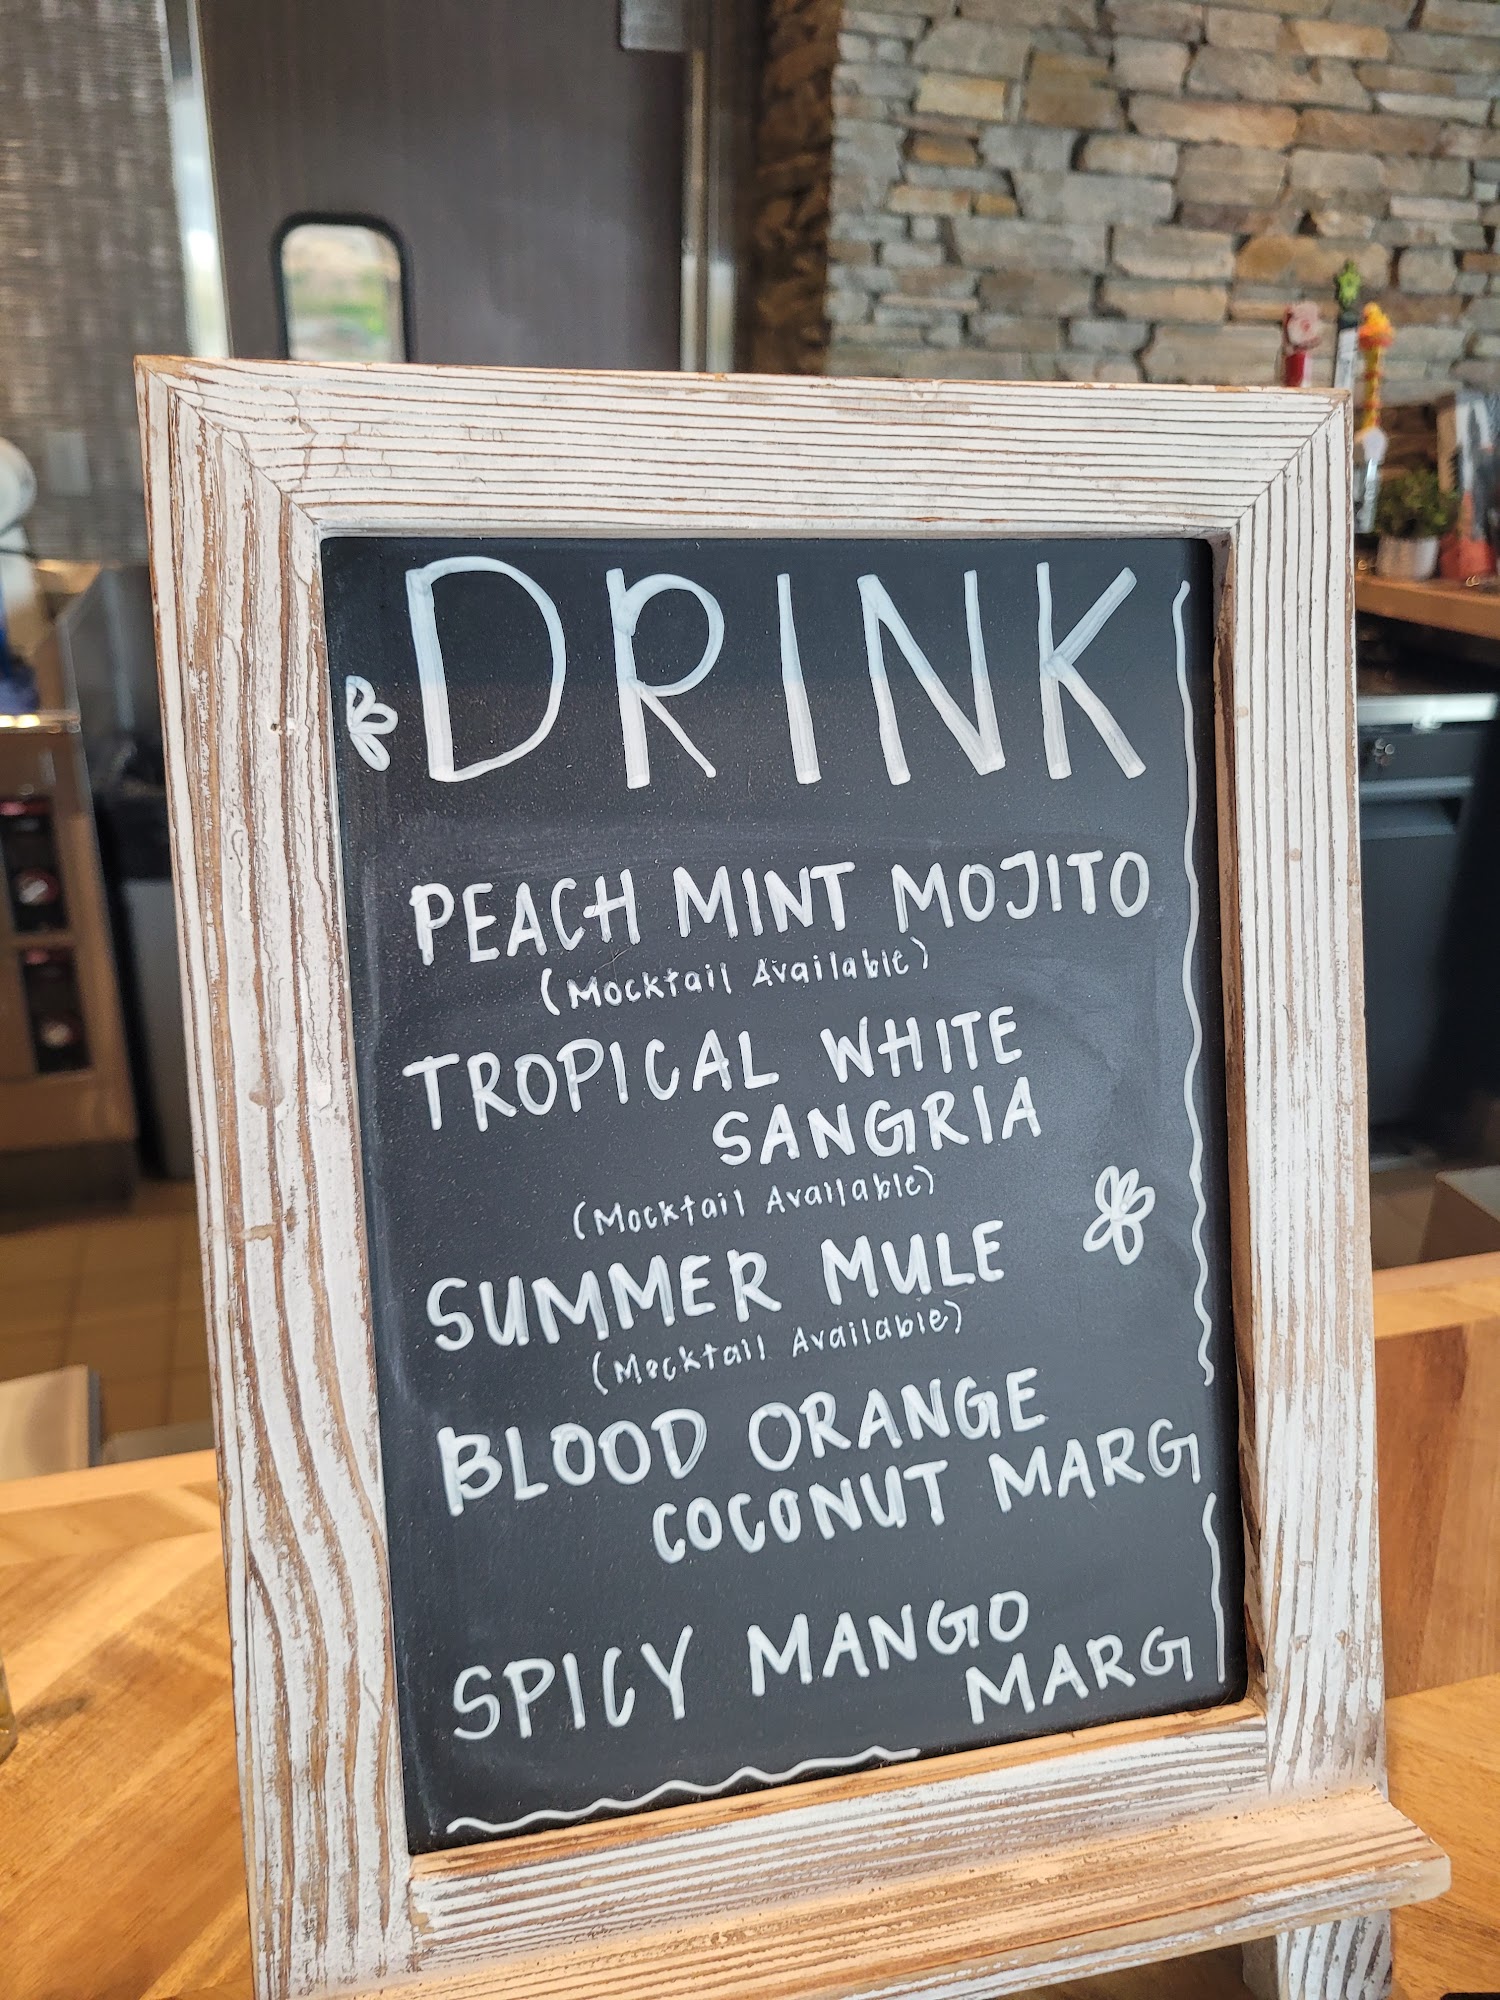 DRINK
PEACH MINT MOJITO
(Mocktail Available)
TROPICAL WHITE
SANGRIA
(Mocktail Available)
SUMMER MULE
(Mocktail Available)
BLOOD ORANGE
COCONUT MARG
SPICY MANGO
MARG